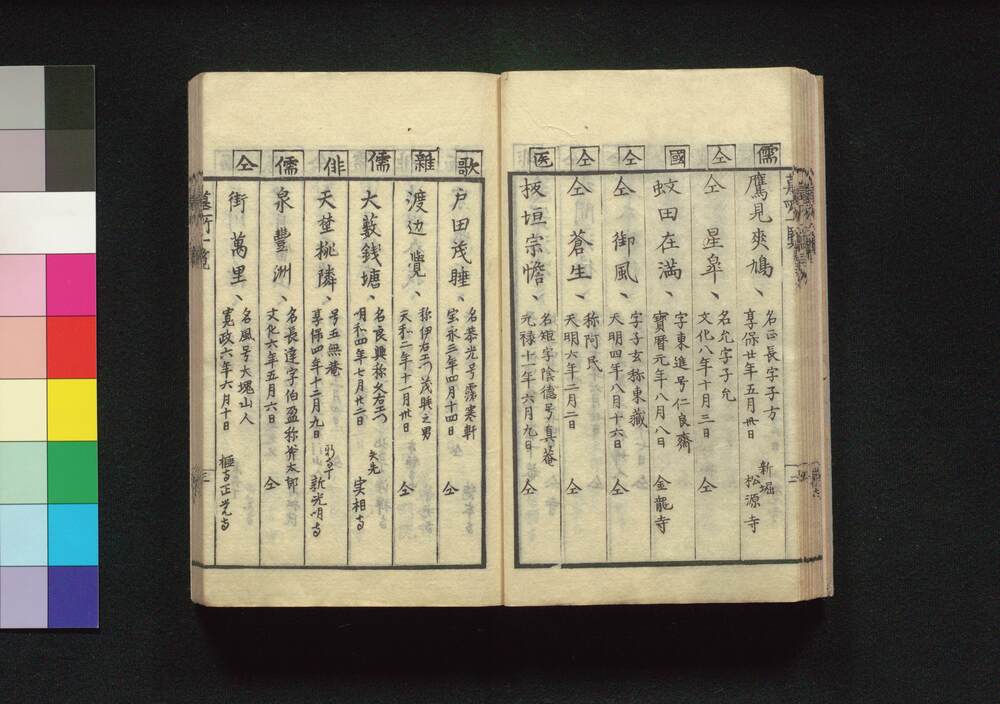 儒
鷹見爽鳩
名正長字子方
享保廿年五月卅日
新堀
松源寺
仝
仝 星皐
名允字子允
文化八年十月三日
仝
國
蚊田在満
字東進号仁良齋
寶暦元年八月八日
金龍寺
仝
仝 御風
字子玄称東藏
天明四年八月十六日
仝
仝
仝 蒼生
称阿民
天明六年二月二日
仝
医
板垣宗憺
名矩字陰徳号真菴
元禄十一年六月九日
仝
歌
戸田茂睡
名恭光号露寒軒
宝永三年四月十四日
仝
雜
渡辺覺
称伊右エ门茂睡之男
天和二年十一月卅日
仝
儒
大藪銭塘
名良興称久右エ门
明和四年七月廿二日
矢先
実相寺
俳
天埜桃隣
号五無菴
享保四年十二月九日
新光明寺
儒
泉豐洲
名長達字伯盈称斧太郎
文化六年五月六日
仝
仝
街萬里
名風号大塊山人
寛政六年六月十日
正覚寺
墓所一覧
三